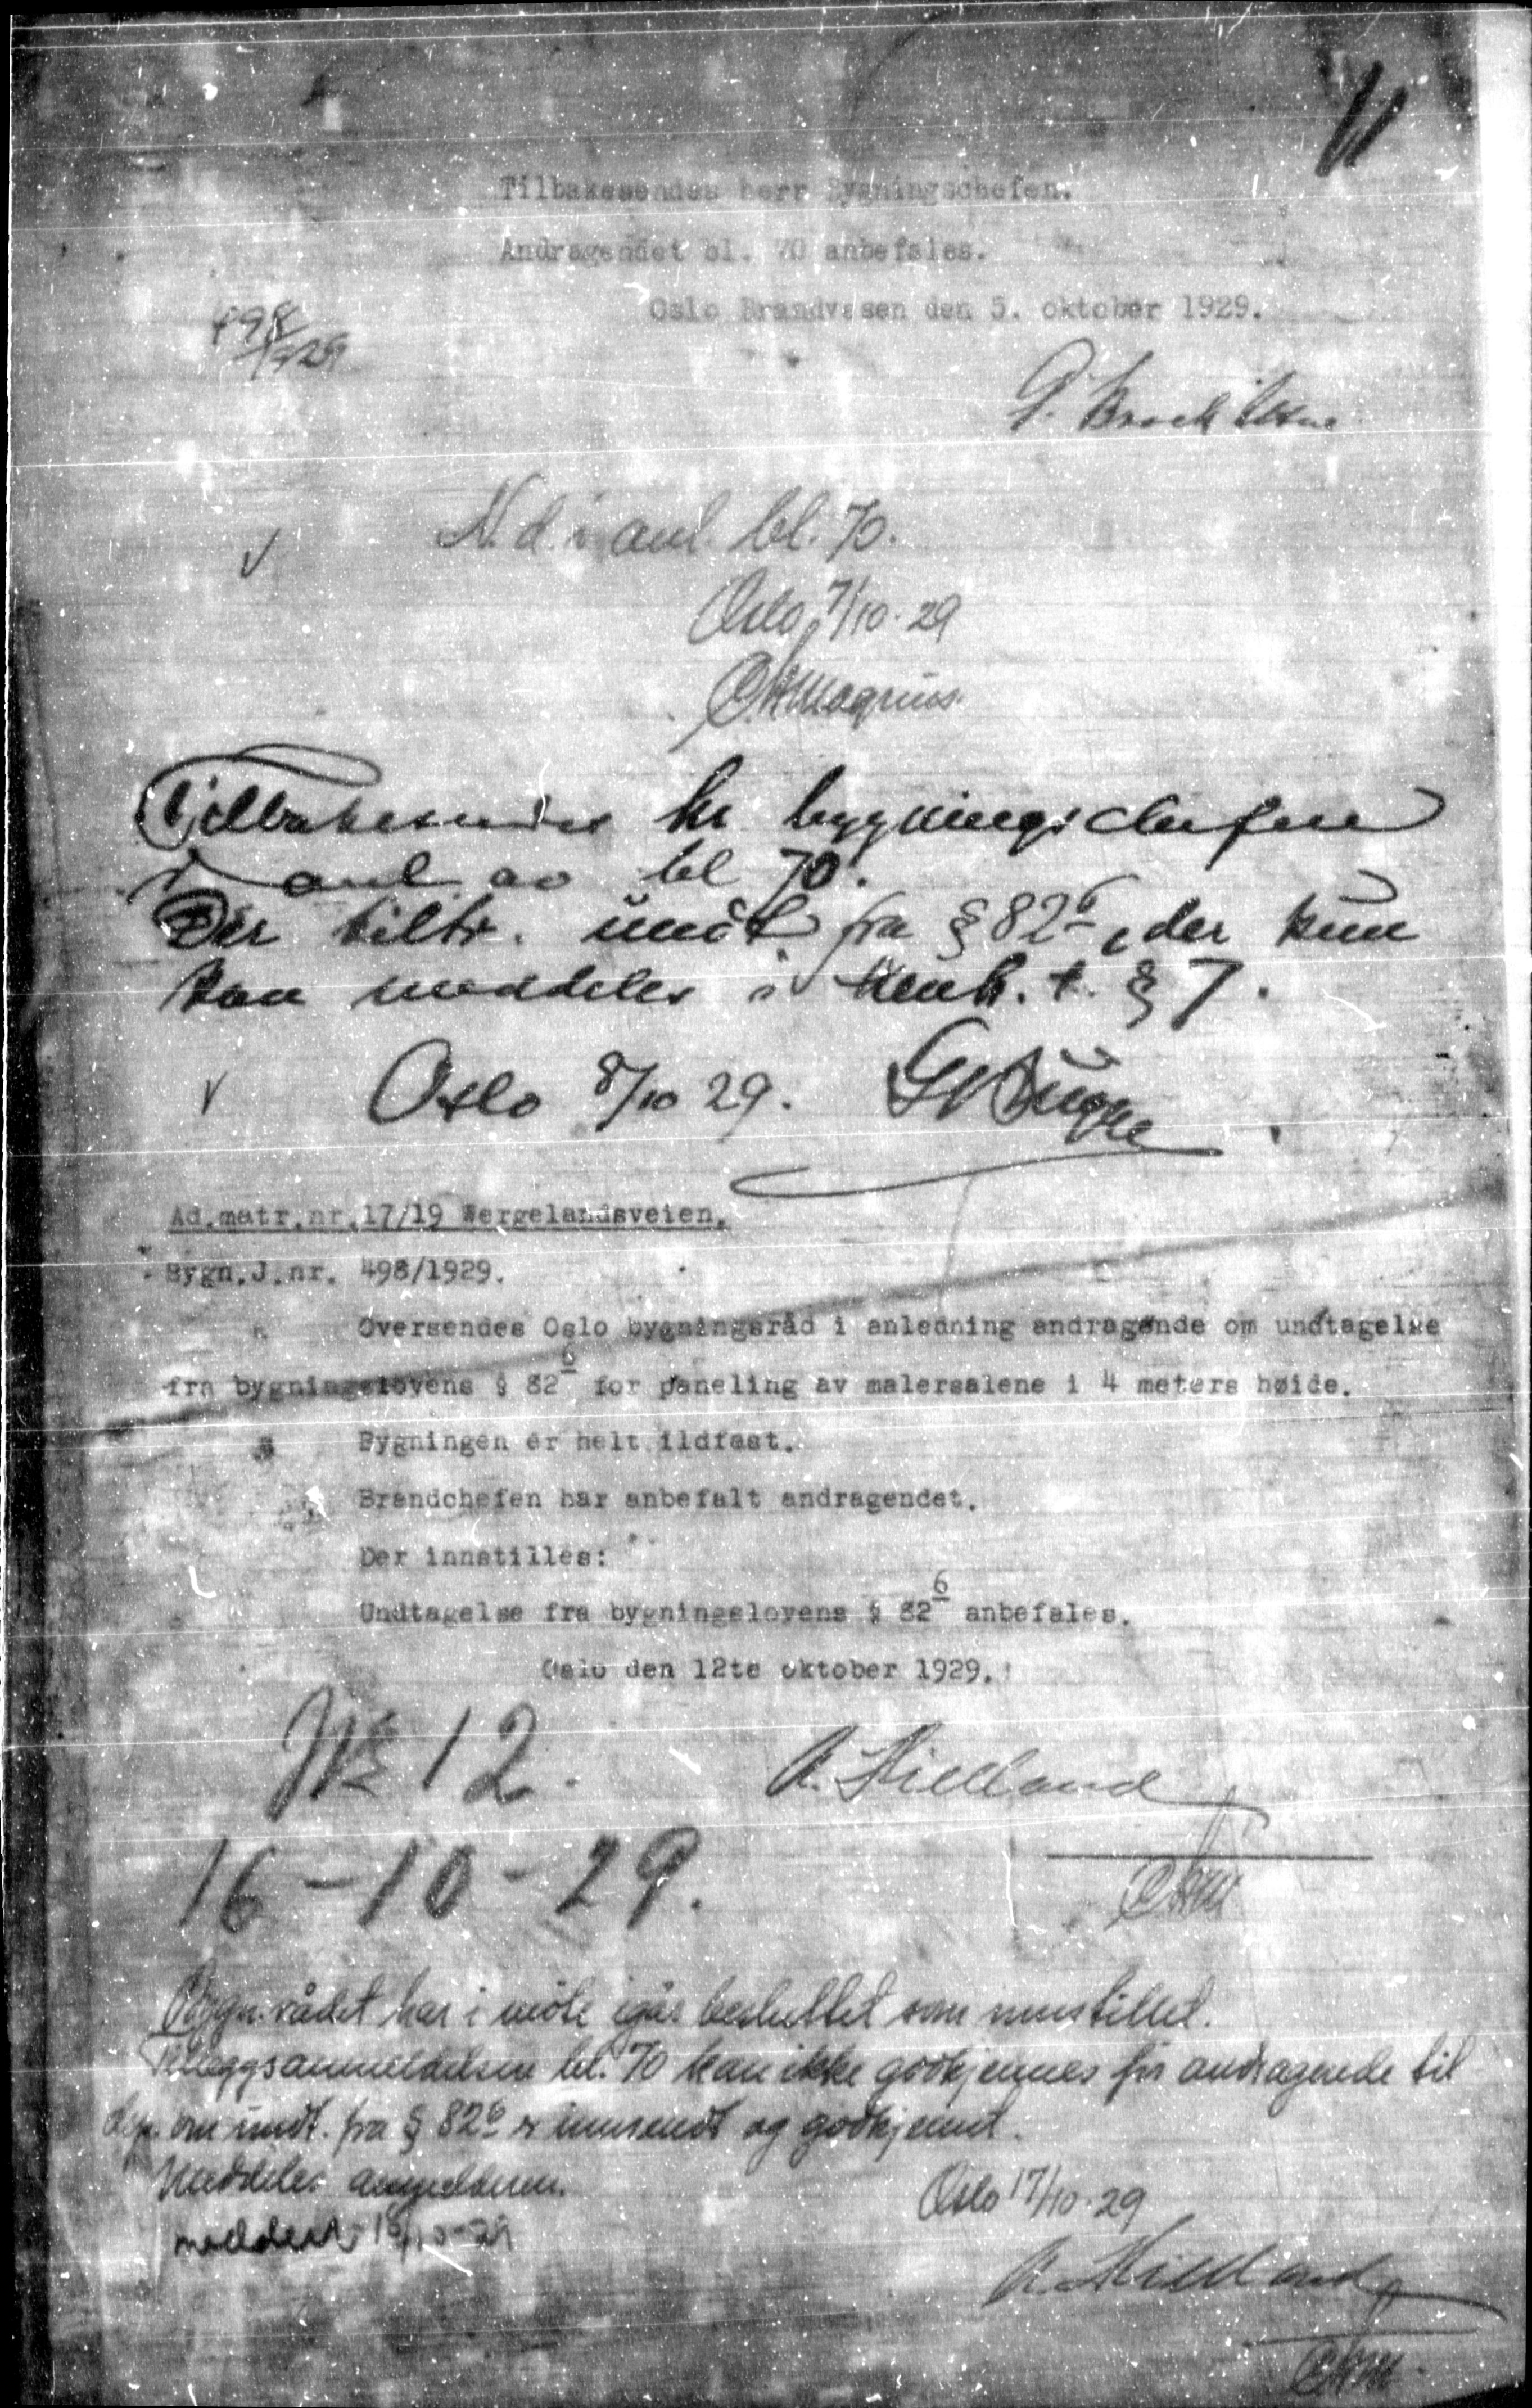 Tilbakesendes herr Bygningschefen.
Andragendet bl. 70 anbefales.
Oslo Brandvesen den 5. oktober 1929.
498/1929
N.d. i anl. bl. 70.
Oslo 7/10-29
Tilbakesendes hr bygningschefen
i anl av bl 70.
Der tiltr. undt fra § 82 6, der kun
kan meddeles i henh. t. § 7.
Oslo 8/10 29.
Ad. matr. nr. 17/19 Wergelandsveien.
Bygn. J. nr. 498/1929.
Oversendes Oslo bygningsråd i anledning andragende om undtagelse
fra bygningslovens § 82 6 for paneling av malersalene i 4 meters høide.
Bygningen er helt ildfast.
Brandchefen har anbefalt andragendet.
Der innstilles:
Undtagelse fra bygningslovens § 82 6 anbefales.
Oslo den 12te oktober 1929.
No 12.
A. Kielland
16-10-29.
Bygn.rådet har i møte igår besluttet som innstillet.
Tilleggsanmeldelsen bl. 70 kan ikke godkjennes før andragende til
dep. om undt. fra § 82 6 er innsendt og godkjent.
Meddeles anmelderen.
Oslo 17/10-29
A. Kielland